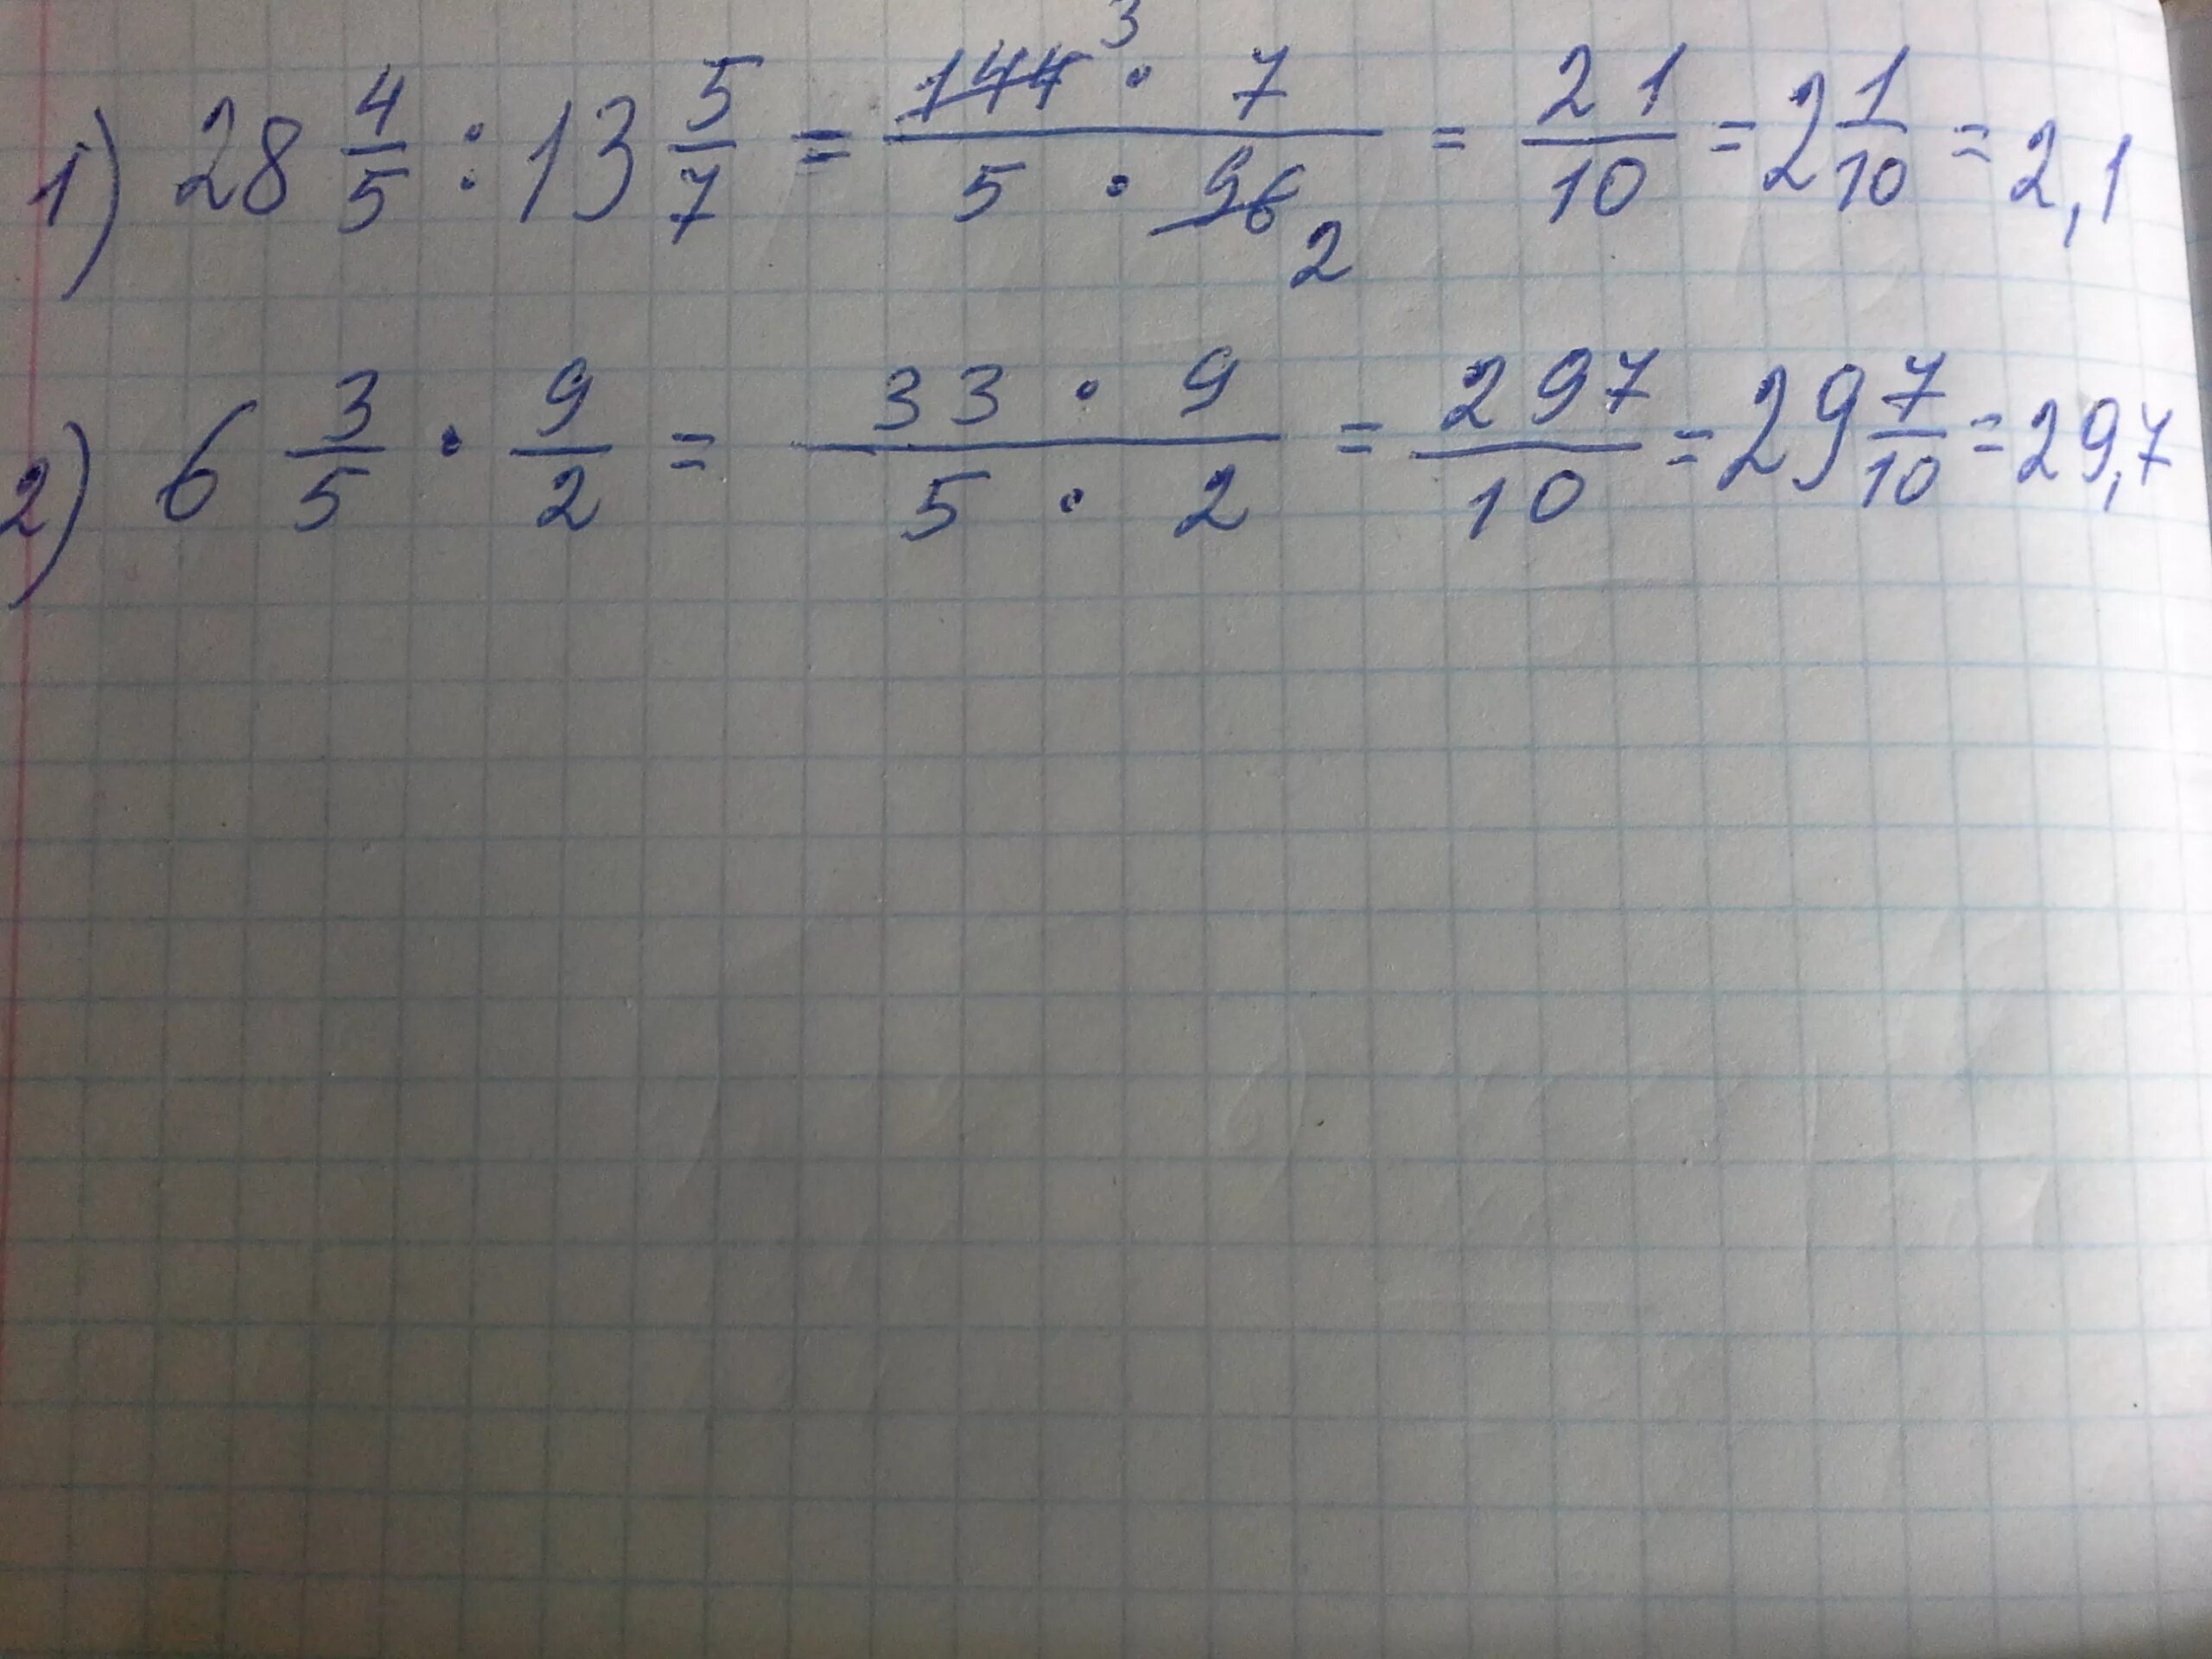 1) 28 4/5 : 13 5/7 = 144 3 · 7 / 5 · 96 2 = 21/10 = 2 1/10 = 2,1
2) 6 3/5 · 9/2 = 33 · 9 / 5 · 2 = 297/10 = 29 7/10 = 29,7